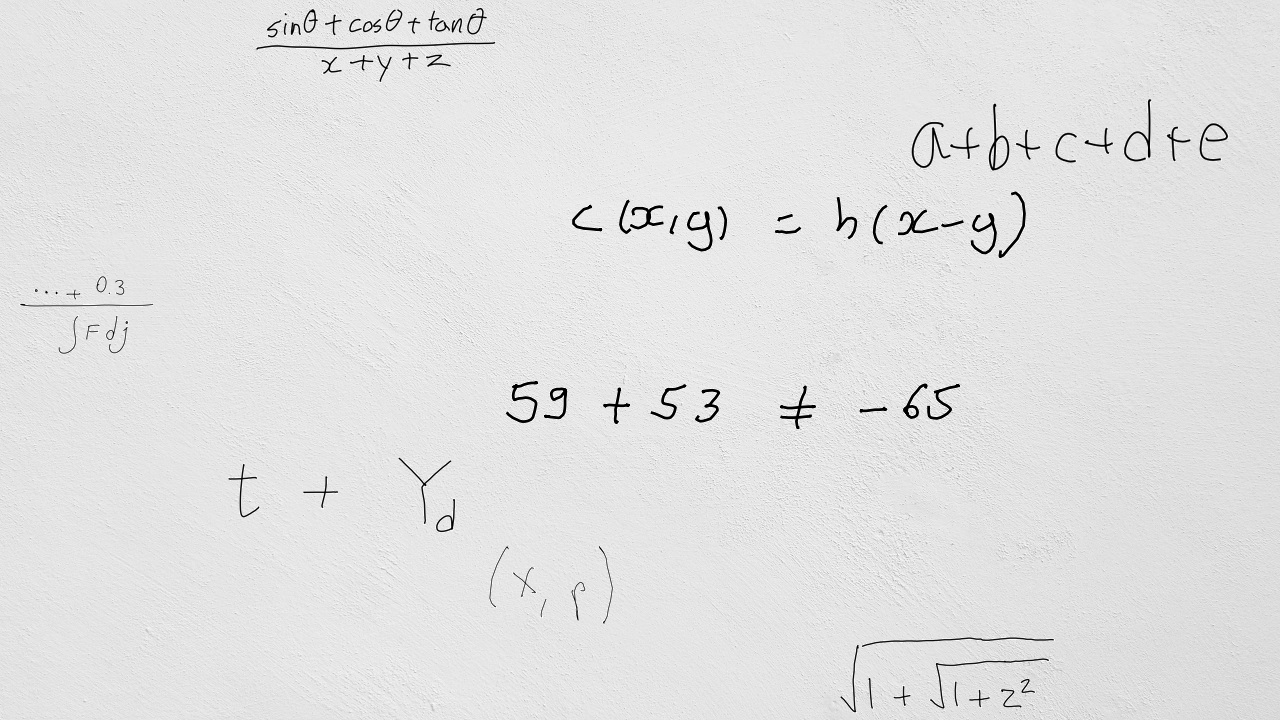 \frac{\sin\theta + \cos\theta + \tan\theta}{x + y + z}
a + b + c + d + e
c(x, y) = h(x - y)
\frac{\cdots + 0.3}{\int F dj}
59 + 53 \neq -65
t + Y_d
(x, p)
\sqrt{1 + \sqrt{1 + z^2}}